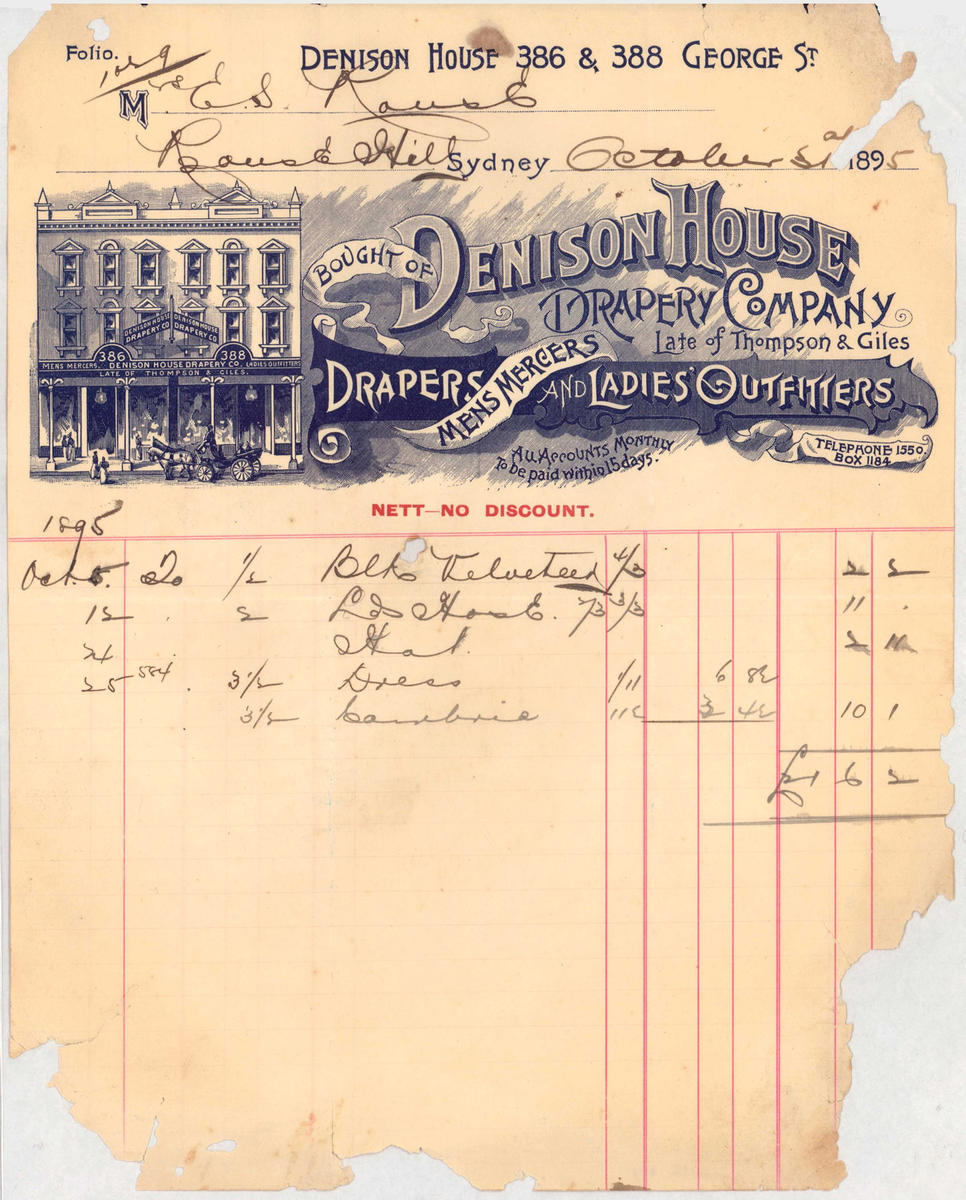 Folio. 1049
DENISON HOUSE 386 & 388 GEORGE ST
Mrs E. S. Rouse
Rouse Hill Sydney October 31st 1895
BOUGHT OF DENISON HOUSE
DRAPERY COMPANY
Late of Thompson & Giles
DRAPERS, MENS MERCERS AND LADIES' OUTFITTERS
All Accounts Monthly
To be paid within 15 days.
TELEPHONE 1550.
BOX 1184
DENISON HOUSE DRAPERY CO DENISON HOUSE DRAPERY CO
386 388
MENS MERCERS. DENISON HOUSE DRAPERY CO. LADIES OUTFITTERS
LATE OF THOMPSON & GILES.
NETT—NO DISCOUNT.
1895
Oct. 5. 20 1/2 Blk Velveteen 4/3 2 2
12 . 2 Hose. 2/3 3/3 11 .
24 Hat. 2 11
25 584 . 3 1/2 Dress 1/11 6 8½
3 1/2 Cambric 11½ 3 4½ 10 1
£1 6 2